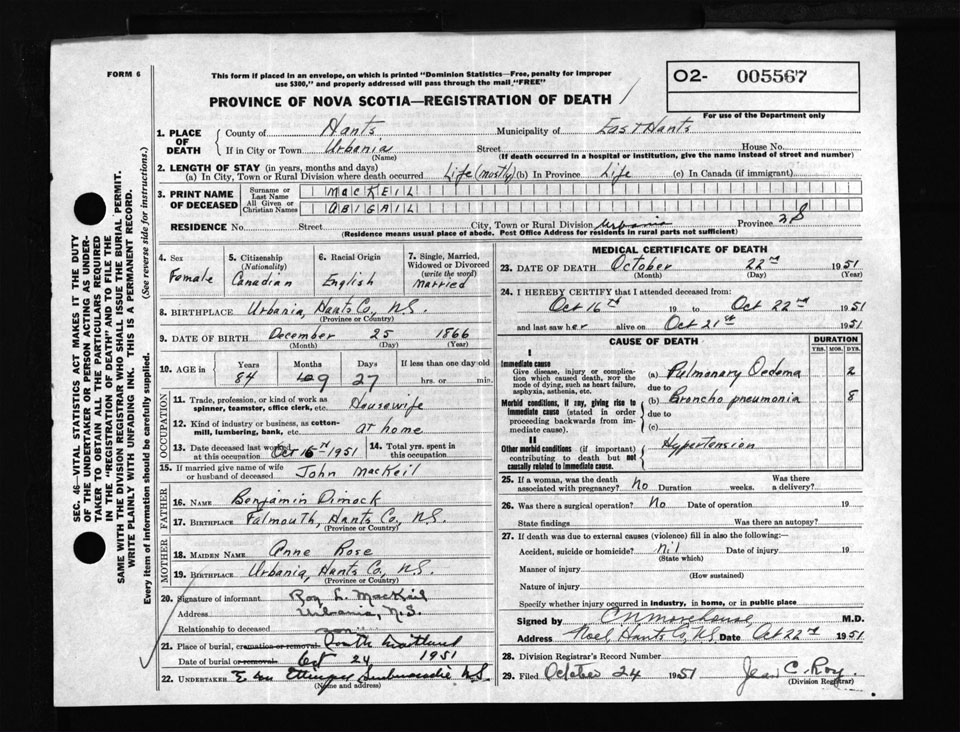 FORM 6
This form if placed in an envelope, on which is printed "Dominion Statistics—Free, penalty for improper
use $300," and properly addressed will pass through the mail "FREE"
O2- 005567
For use of the Department only
PROVINCE OF NOVA SCOTIA—REGISTRATION OF DEATH
1. PLACE OF DEATH
County of Hants Municipality of East Hants
If in City or Town Urbania Street House No.
(Name) (If death occurred in a hospital or institution, give the name instead of street and number)
2. LENGTH OF STAY (in years, months and days)
(a) In City, Town or Rural Division where death occurred Life (mostly) (b) In Province Life (c) In Canada (if immigrant)
3. PRINT NAME OF DECEASED
Surname or Last Name MACKEIL
All Given or Christian Names ABIGAIL
RESIDENCE No. Street City, Town or Rural Division Urbania Province N.S
(Residence means usual place of abode. Post Office Address for residents in rural parts not sufficient)
4. Sex Female
5. Citizenship (Nationality) Canadian
6. Racial Origin English
7. Single, Married, Widowed or Divorced (write the word) Married
8. BIRTHPLACE Urbania, Hants Co, N.S.
(Province or Country)
9. DATE OF BIRTH December 25 1866
(Month) (Day) (Year)
10. AGE in Years Months Days If less than one day old
84 9 27 hrs. or min.
OCCUPATION
11. Trade, profession, or kind of work as
spinner, teamster, office clerk, etc. Housewife
12. Kind of industry or business, as cotton-
mill, lumbering, bank, etc. at home
13. Date deceased last worked
at this occupation Oct 16th 1951
14. Total yrs. spent in
this occupation
15. If married give name of wife
or husband of deceased John MacKeil
FATHER
16. NAME Benjamin Dimock
17. BIRTHPLACE Falmouth, Hants Co, N.S.
(Province or Country)
MOTHER
18. MAIDEN NAME Anne Rose
19. BIRTHPLACE Urbania, Hants Co, N.S.
(Province or Country)
20. Signature of informant Roy L. MacKeil
Address Urbania, N.S.
Relationship to deceased son
21. Place of burial, cremation or removal South Maitland
Date of burial or removal Oct 24 1951
22. UNDERTAKER Ettinger Shubenacadie N.S.
(Name and address)
MEDICAL CERTIFICATE OF DEATH
23. DATE OF DEATH October 22nd 1951
(Month) (Day) (Year)
24. I HEREBY CERTIFY that I attended deceased from:
Oct 16th 19 to Oct 22nd 1951
and last saw her alive on Oct 21st 1951
CAUSE OF DEATH
DURATION
YRS. MOS. DYS.
I
Immediate cause
Give disease, injury or complica-
tion which caused death, NOT the
mode of dying, such as heart failure,
asphyxia, asthenia, etc.
(a) Pulmonary Oedema 2
due to
Morbid conditions, if any, giving rise to
immediate cause (stated in order
proceeding backwards from im-
mediate cause).
(b) Broncho pneumonia 8
due to
(c)
II
Other morbid conditions (if important)
contributing to death but not
causally related to immediate cause.
Hypertension
25. If a woman, was the death
associated with pregnancy? No Duration weeks. Was there
a delivery?
26. Was there a surgical operation? No Date of operation 19
State findings Was there an autopsy?
27. If death was due to external causes (violence) fill in also the following:
Accident, suicide or homicide? nil Date of injury 19
(State which)
Manner of injury
(How sustained)
Nature of injury
Specify whether injury occurred in industry, in home, or in public place
Signed by C N Morehouse M.D.
Address Noel Hants Co, N.S. Date Oct 22nd 1951
28. Division Registrar's Record Number
29. Filed October 24 1951 Jean C. Roy.
(Division Registrar)
SEC. 46—VITAL STATISTICS ACT MAKES IT THE DUTY
OF THE UNDERTAKER OR PERSON ACTING AS UNDER-
TAKER TO OBTAIN ALL THE PARTICULARS REQUIRED
IN THE "REGISTRATION OF DEATH" AND TO FILE THE
SAME WITH THE DIVISION REGISTRAR WHO SHALL ISSUE THE BURIAL PERMIT.
WRITE PLAINLY WITH UNFADING INK. THIS IS A PERMANENT RECORD.
Every item of information should be carefully supplied. (See reverse side for instructions.)